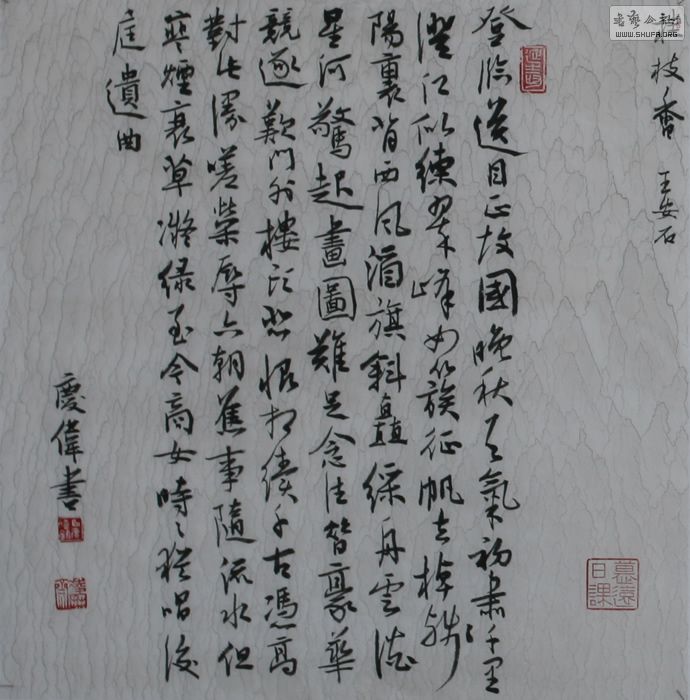 枝香 王安石
登臨送目正故國晚秋天氣初肅千里
澄江似練翠峰如簇征帆去棹殘
陽裏背西風酒旗斜矗綵舟雲淡
星河驚起畫圖難足念往昔豪華
競逐歎門外樓頭悲恨相續千古憑高
對此漫嗟榮辱六朝舊事隨流水但
寒煙衰草凝绿至今商女時〻猶唱後
庭遺曲
慶偉書
慕遠
日課
書藝公社
WWW.SHUFA.ORG